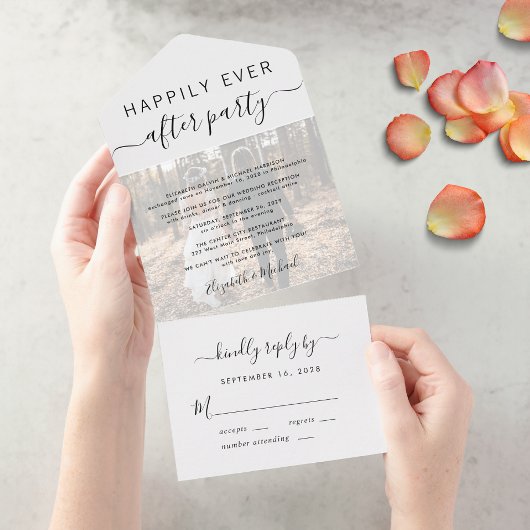 HAPPILY EVER
after party
ELIZABETH GALVIN & MICHAEL HARRISON
exchanged vows on November 16, 2028 in Philadelphia
PLEASE JOIN US FOR OUR WEDDING RECEPTION
with drinks, dinner & dancing cocktail attire
SATURDAY, SEPTEMBER 26, 2029
six o'clock in the evening
THE CENTER CITY RESTAURANT
222 West Main Street, Philadelphia
WE CAN'T WAIT TO CELEBRATE WITH YOU!
with love and joy,
Elizabeth & Michael
kindly reply by
SEPTEMBER 16, 2028
M
accepts regrets
number attending